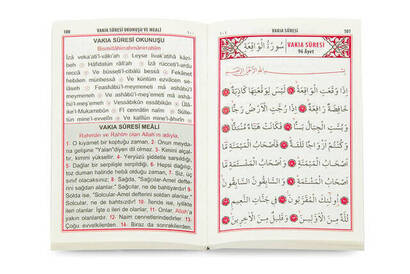 100
VAKIA SÛRESİ OKUNUŞU VE MEALİ
VAKIA SÛRESİ OKUNUŞU
Bismillâhirrahmânirrahîm
İzâ veka'ati'l-vâkı'ah
Leyse livak'atihâ kâzi-
beh
Hâfidatün râfi'ah
İzâ rucceti'l-ardu
raccâ
Ve büsseti'l-cibâlü bessâ
Fekânet
hebâen münbessâ
Ve küntüm ezvâcen
selâseh
Feashâbü'l-meymeneti mâ ashâbü'l-
meymeneh
Ve ashâbü'l-meş'emeti mâ as-
hâbü'l-meş'emeh
Vessâbikûn essâbikûn
Ülâikel-mukarrabûn
Fî cennâtin naîm
Sülle-
tün mine'l-evvelîn
VAKIA SÛRESİ MEÂLİ
Rahmân ve Rahîm olan Allah'ın adıyla,
1- O kıyamet bir koptuğu zaman, 2- Onun meyda-
na gelişine "Yalan"diyen dil olmaz. 3- Kimini alçal-
tır, kimini yükseltir. 4- Yeryüzü şiddetle sarsıldığı,
5- Dağlar bir serpilişle serpildiği, 6- Hepsi dağılıp,
toz duman halinde heba olduğu zaman, 7- Siz, üç
sınıf olacaksınız; 8- Sağda, "Sağcılar-Amel defterini
sağdan alanlar," Sağcılar, ne de bahtiyardırlar! 9-
Solda ise, "Solcular-Amel defterini soldan alanlar,"
Solcular, ne de bahtsızdırlar! 10- İleride ise, iyilikte
ileri olanlar; İşte o ileri de olanlar, 11- Onlar, Allah'a
yakın olanlardır. 12- Naim cennetlerindedirler. 13-
Çoğu evvelkilerden. 14- Biraz da sonrakilerden.
VAKIA SÛRESİ
101
سُورَةُ الْوَاقِعَةِ
VAKIA SÛRESİ
96 Âyet
إِذَا وَقَعَتِ الْوَاقِعَةُ لَيْسَ لِوَقْعَتِهَا كَاذِبَةٌ
خَافِضَةٌ رَافِعَةٌ إِذَا رُجَّتِ الْأَرْضُ رَجًّا
وَبُسَّتِ الْجِبَالُ بَسًّا فَكَانَتْ هَبَاءً مُنْبَثًّا
وَكُنْتُمْ أَزْوَاجًا ثَلَاثَةً فَأَصْحَابُ الْمَيْمَنَةِ
مَا أَصْحَابُ الْمَيْمَنَةِ وَأَصْحَابُ الْمَشْئَمَةِ
مَا أَصْحَابُ الْمَشْئَمَةِ وَالسَّابِقُونَ السَّابِقُونَ
أُولَئِكَ الْمُقَرَّبُونَ فِي جَنَّاتِ النَّعِيمِ
ثُلَّةٌ مِنَ الْأَوَّلِينَ وَقَلِيلٌ مِنَ الْآخِرِينَ